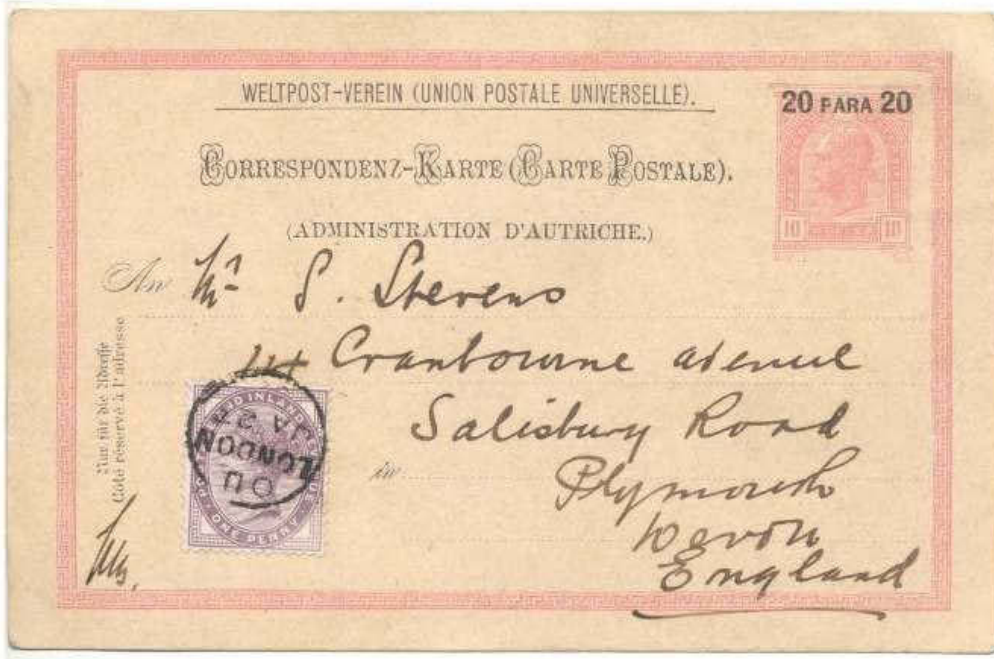 WELTPOST-VEREIN (UNION POSTALE UNIVERSELLE).
20 PARA 20
CORRESPONDENZ-KARTE (CARTE POSTALE).
10 10
(ADMINISTRATION D'AUTRICHE.)
An Mr S. Stevens
44 Cranbourne avenue
Salisbury Road
in Plymouth
Devon
England
Nur für die Adresse
Côté réservé à l'adresse
INLAND
ONE PENNY
LONDON
JA 24